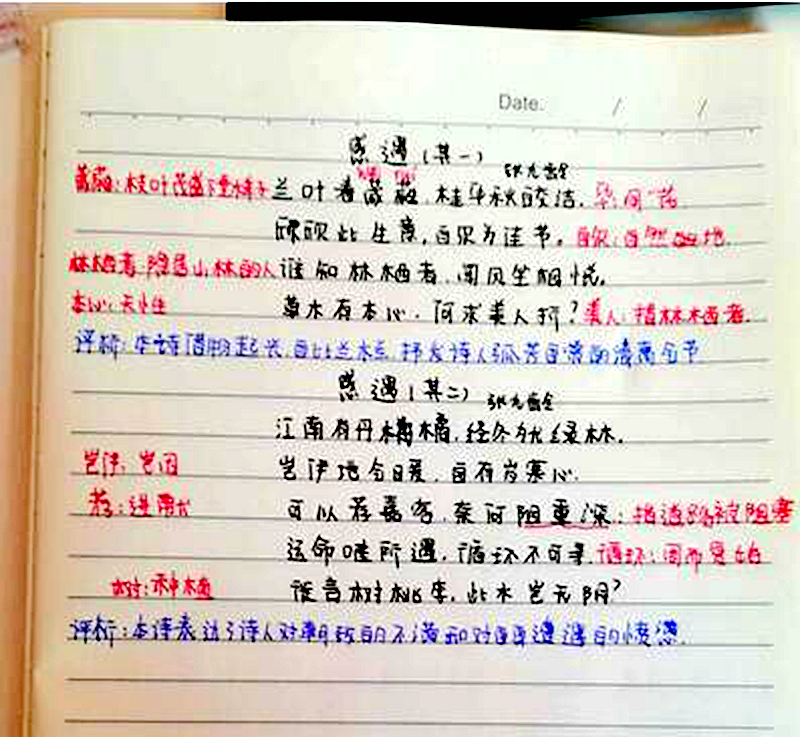 Date. / /
感遇(其一)
张九龄
葳蕤:枝叶茂盛下垂样子 兰叶春葳蕤,桂华秋皎洁. 华同"花
欣欣此生意,自尔为佳节。自尔:自然而地.
林栖者:隐居山林的人 谁知林栖者,闻风坐相悦,
本心:天性 草木有本心.何求美人折?美人:指林栖者.
评析:本诗借物起兴,自比兰桂,抒发诗人孤芳自赏的清高气节
感遇(其二)
张九龄
江南有丹橘,经冬犹绿林.
岂伊:岂因 岂伊地气暖,自有岁寒心.
荐:进献 可以荐嘉客,奈何阻重深:指道路被阻塞
运命唯所遇,循环不可寻.循环:周而复始
树:种植 徒言树桃李,此木岂无阴?
评析:本诗表达了诗人对朝政的不满和对自身遭遇的愤懑.